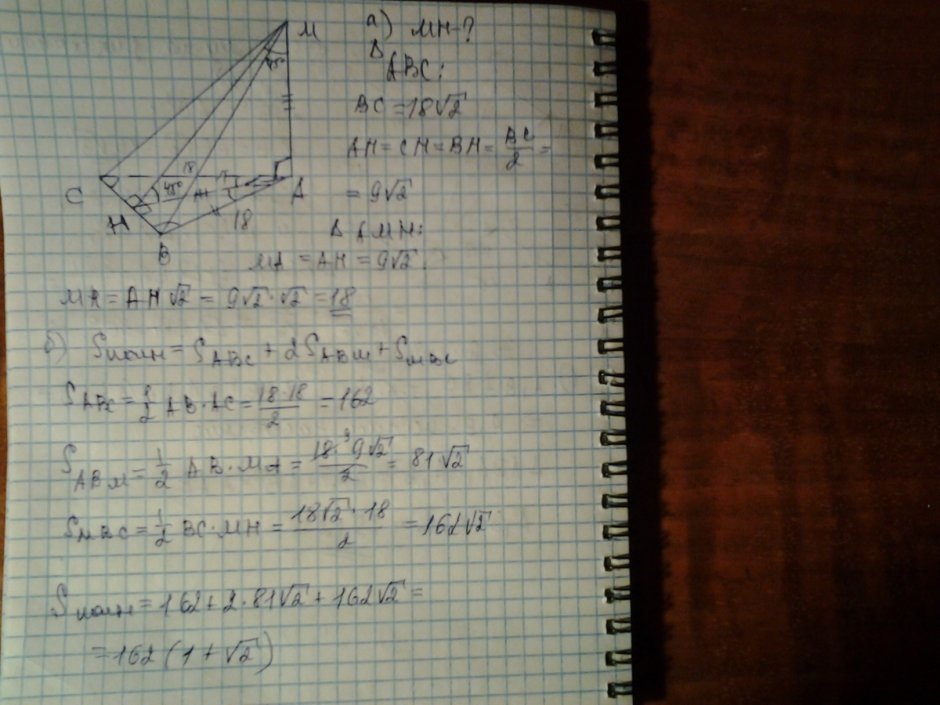 а) МН-?
Δ ABC:
BC = 18√2
AH = CH = BH = BC/2 =
= 9√2
Δ AMH:
MA = AH = 9√2.
MH = AH√2 = 9√2·√2 = 18
б) Sполн = SABC + 2SABM + SMBC
SABC = 1/2 AB·AC = 18·18/2 = 162
SABM = 1/2 AB·MA = 18·9√2/2 = 81√2
SMBC = 1/2 BC·MH = 18√2·18/2 = 162√2
Sполн = 162 + 2·81√2 + 162√2 =
= 162(1 + √2)
M
45°
18
C
45°
A
H
18
B